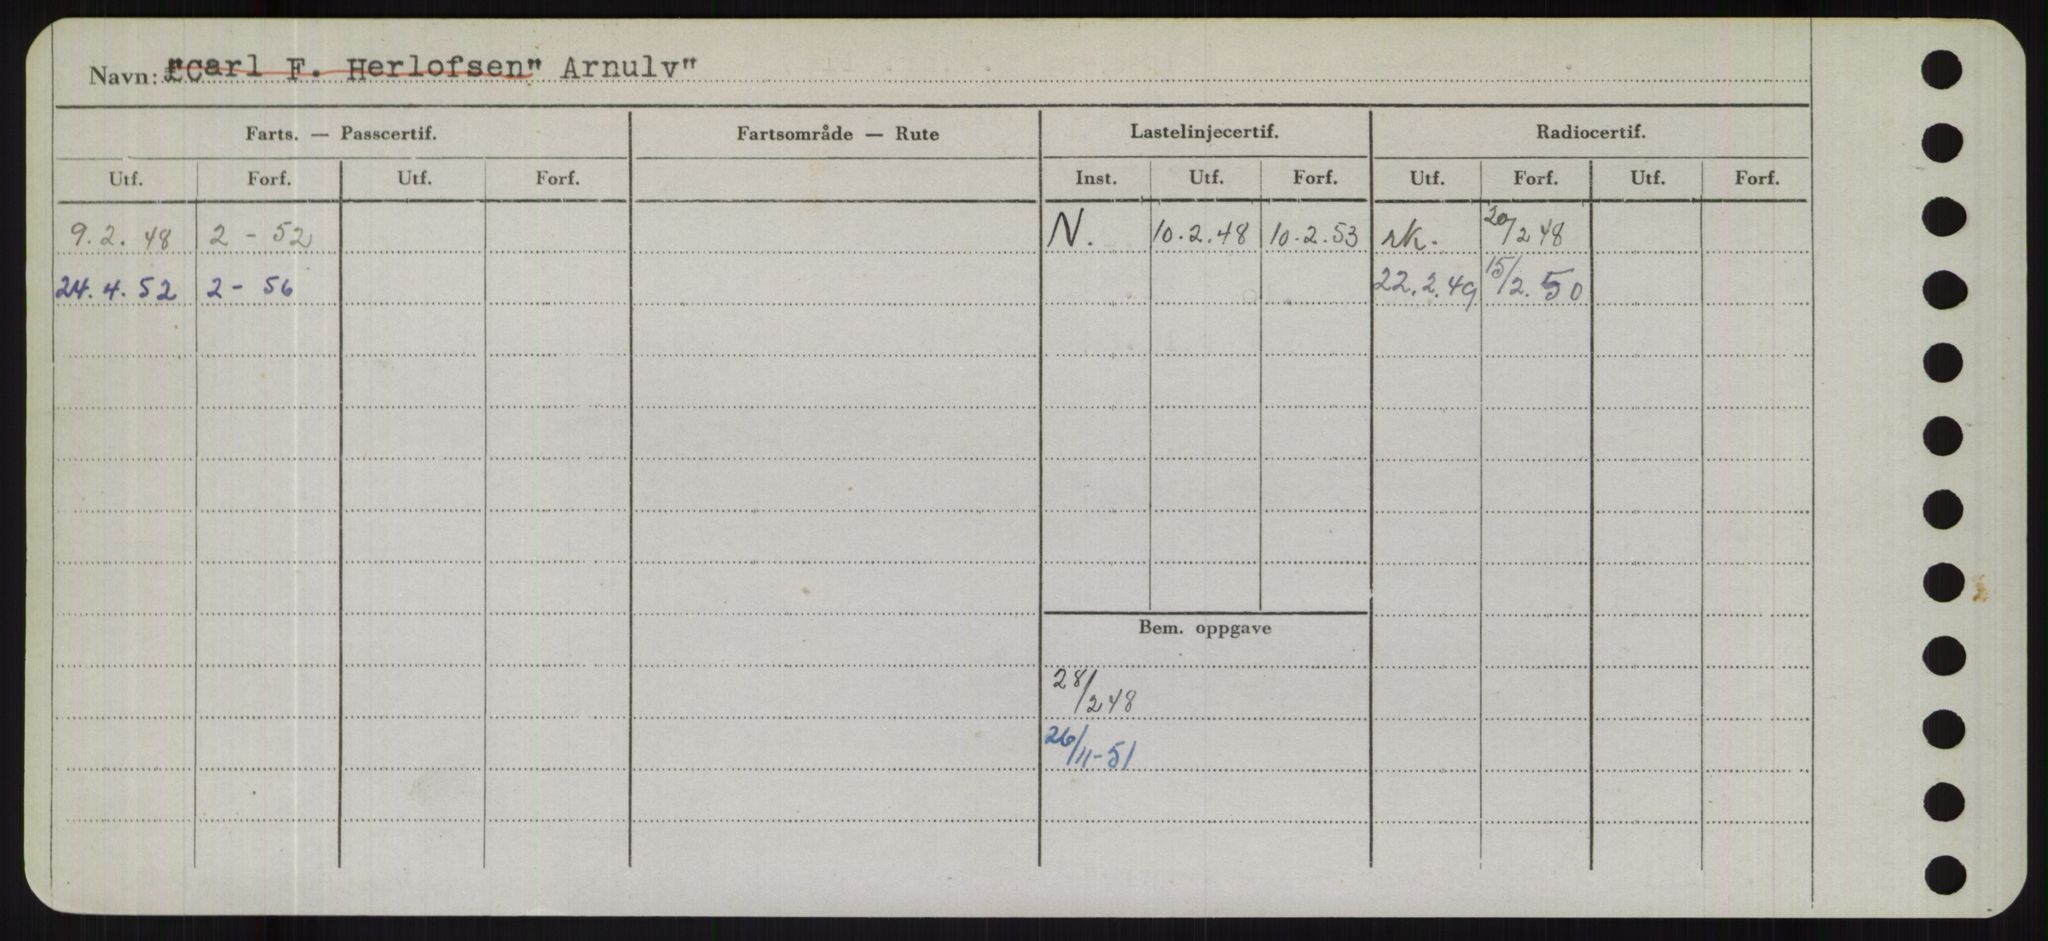 Navn: "Carl F. Herlofsen" Arnulv"
Farts. — Passcertif. Fartsområde — Rute Lastelinjecertif. Radiocertif.
Utf. Forf. Utf. Forf. Inst. Utf. Forf. Utf. Forf. Utf. Forf.
9.2.48 2 - 52 N. 10.2.48 10.2.53 rk. 20/2 48
24.4.52 2 - 56 22.2.49 15/2.50
Bem. oppgave
28/2 48
26/11-51